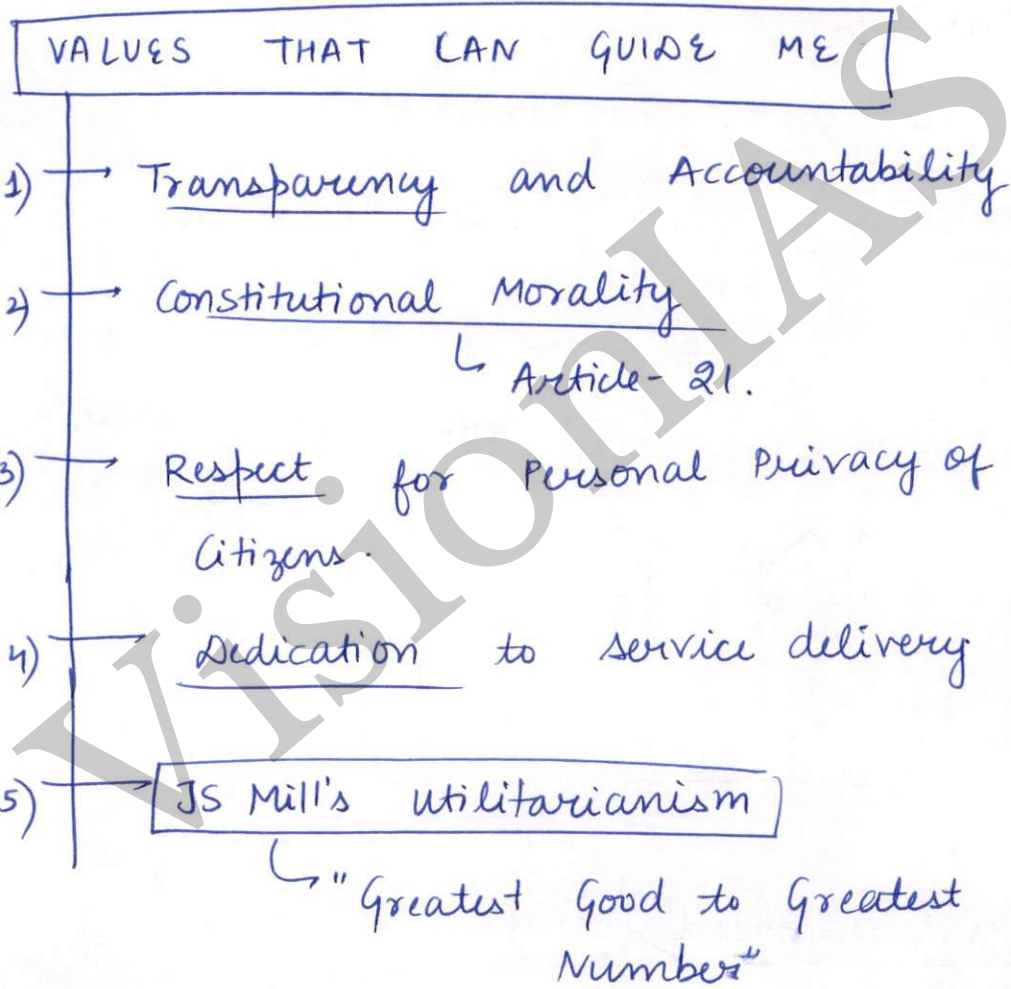 VALUES THAT CAN GUIDE ME
1) → Transparency and Accountability
2) → Constitutional Morality
↳ Article - 21.
3) → Respect for Personal Privacy of
Citizens.
4) Dedication to service delivery
5) → JS Mill's utilitarianism
↳ "Greatest Good to Greatest
Number"
VisionIAS